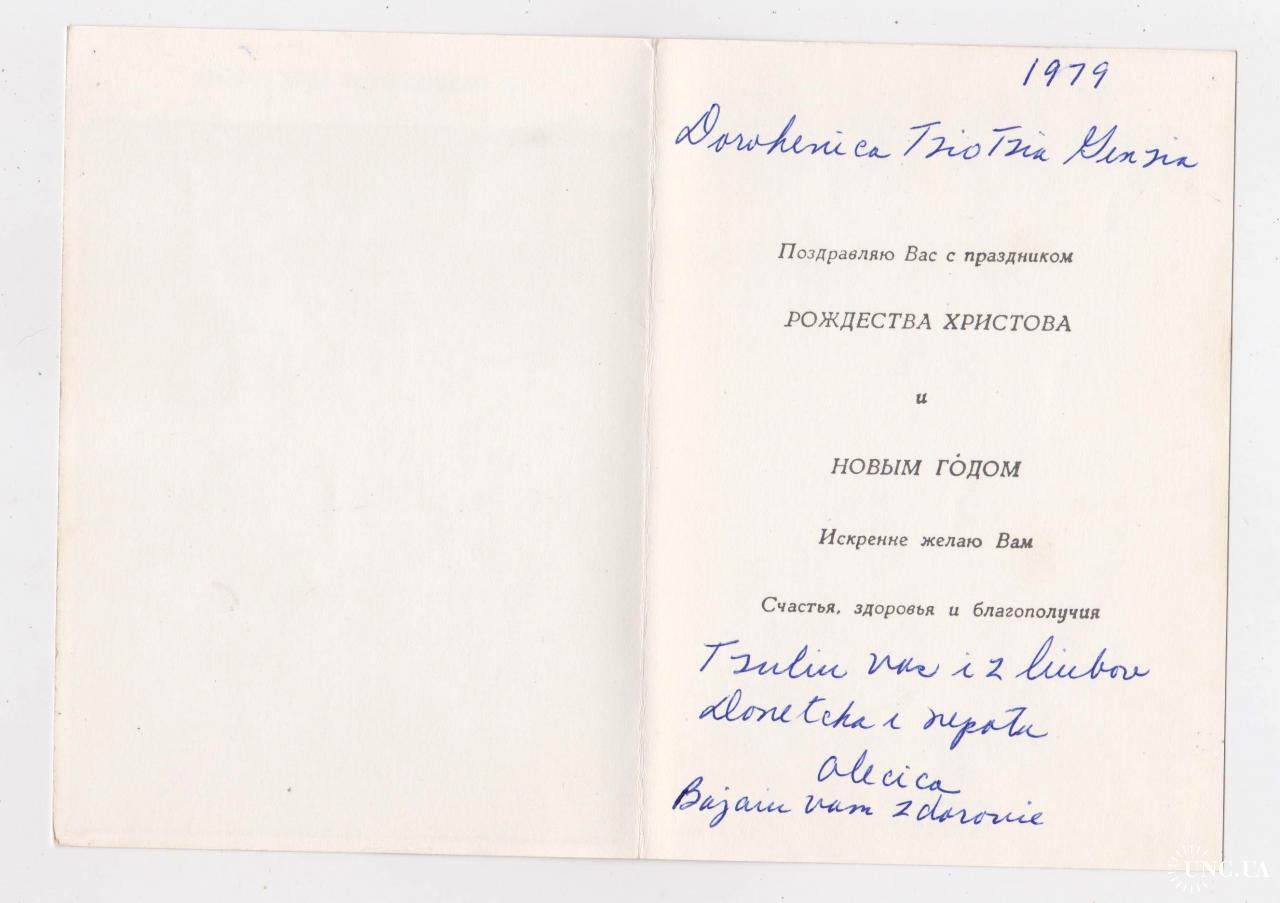 1979
Dorohenica Tsio Tsia Gensia
Поздравляю Вас с праздником
РОЖДЕСТВА ХРИСТОВА
и
НОВЫМ ГО́ДОМ
Искренне желаю Вам
Счастья, здоровья и благополучия
Tsuliu vas i z liubov
Donetcha i nepota
Olecica
Bajaiu vam zdorovie
UNC.UA